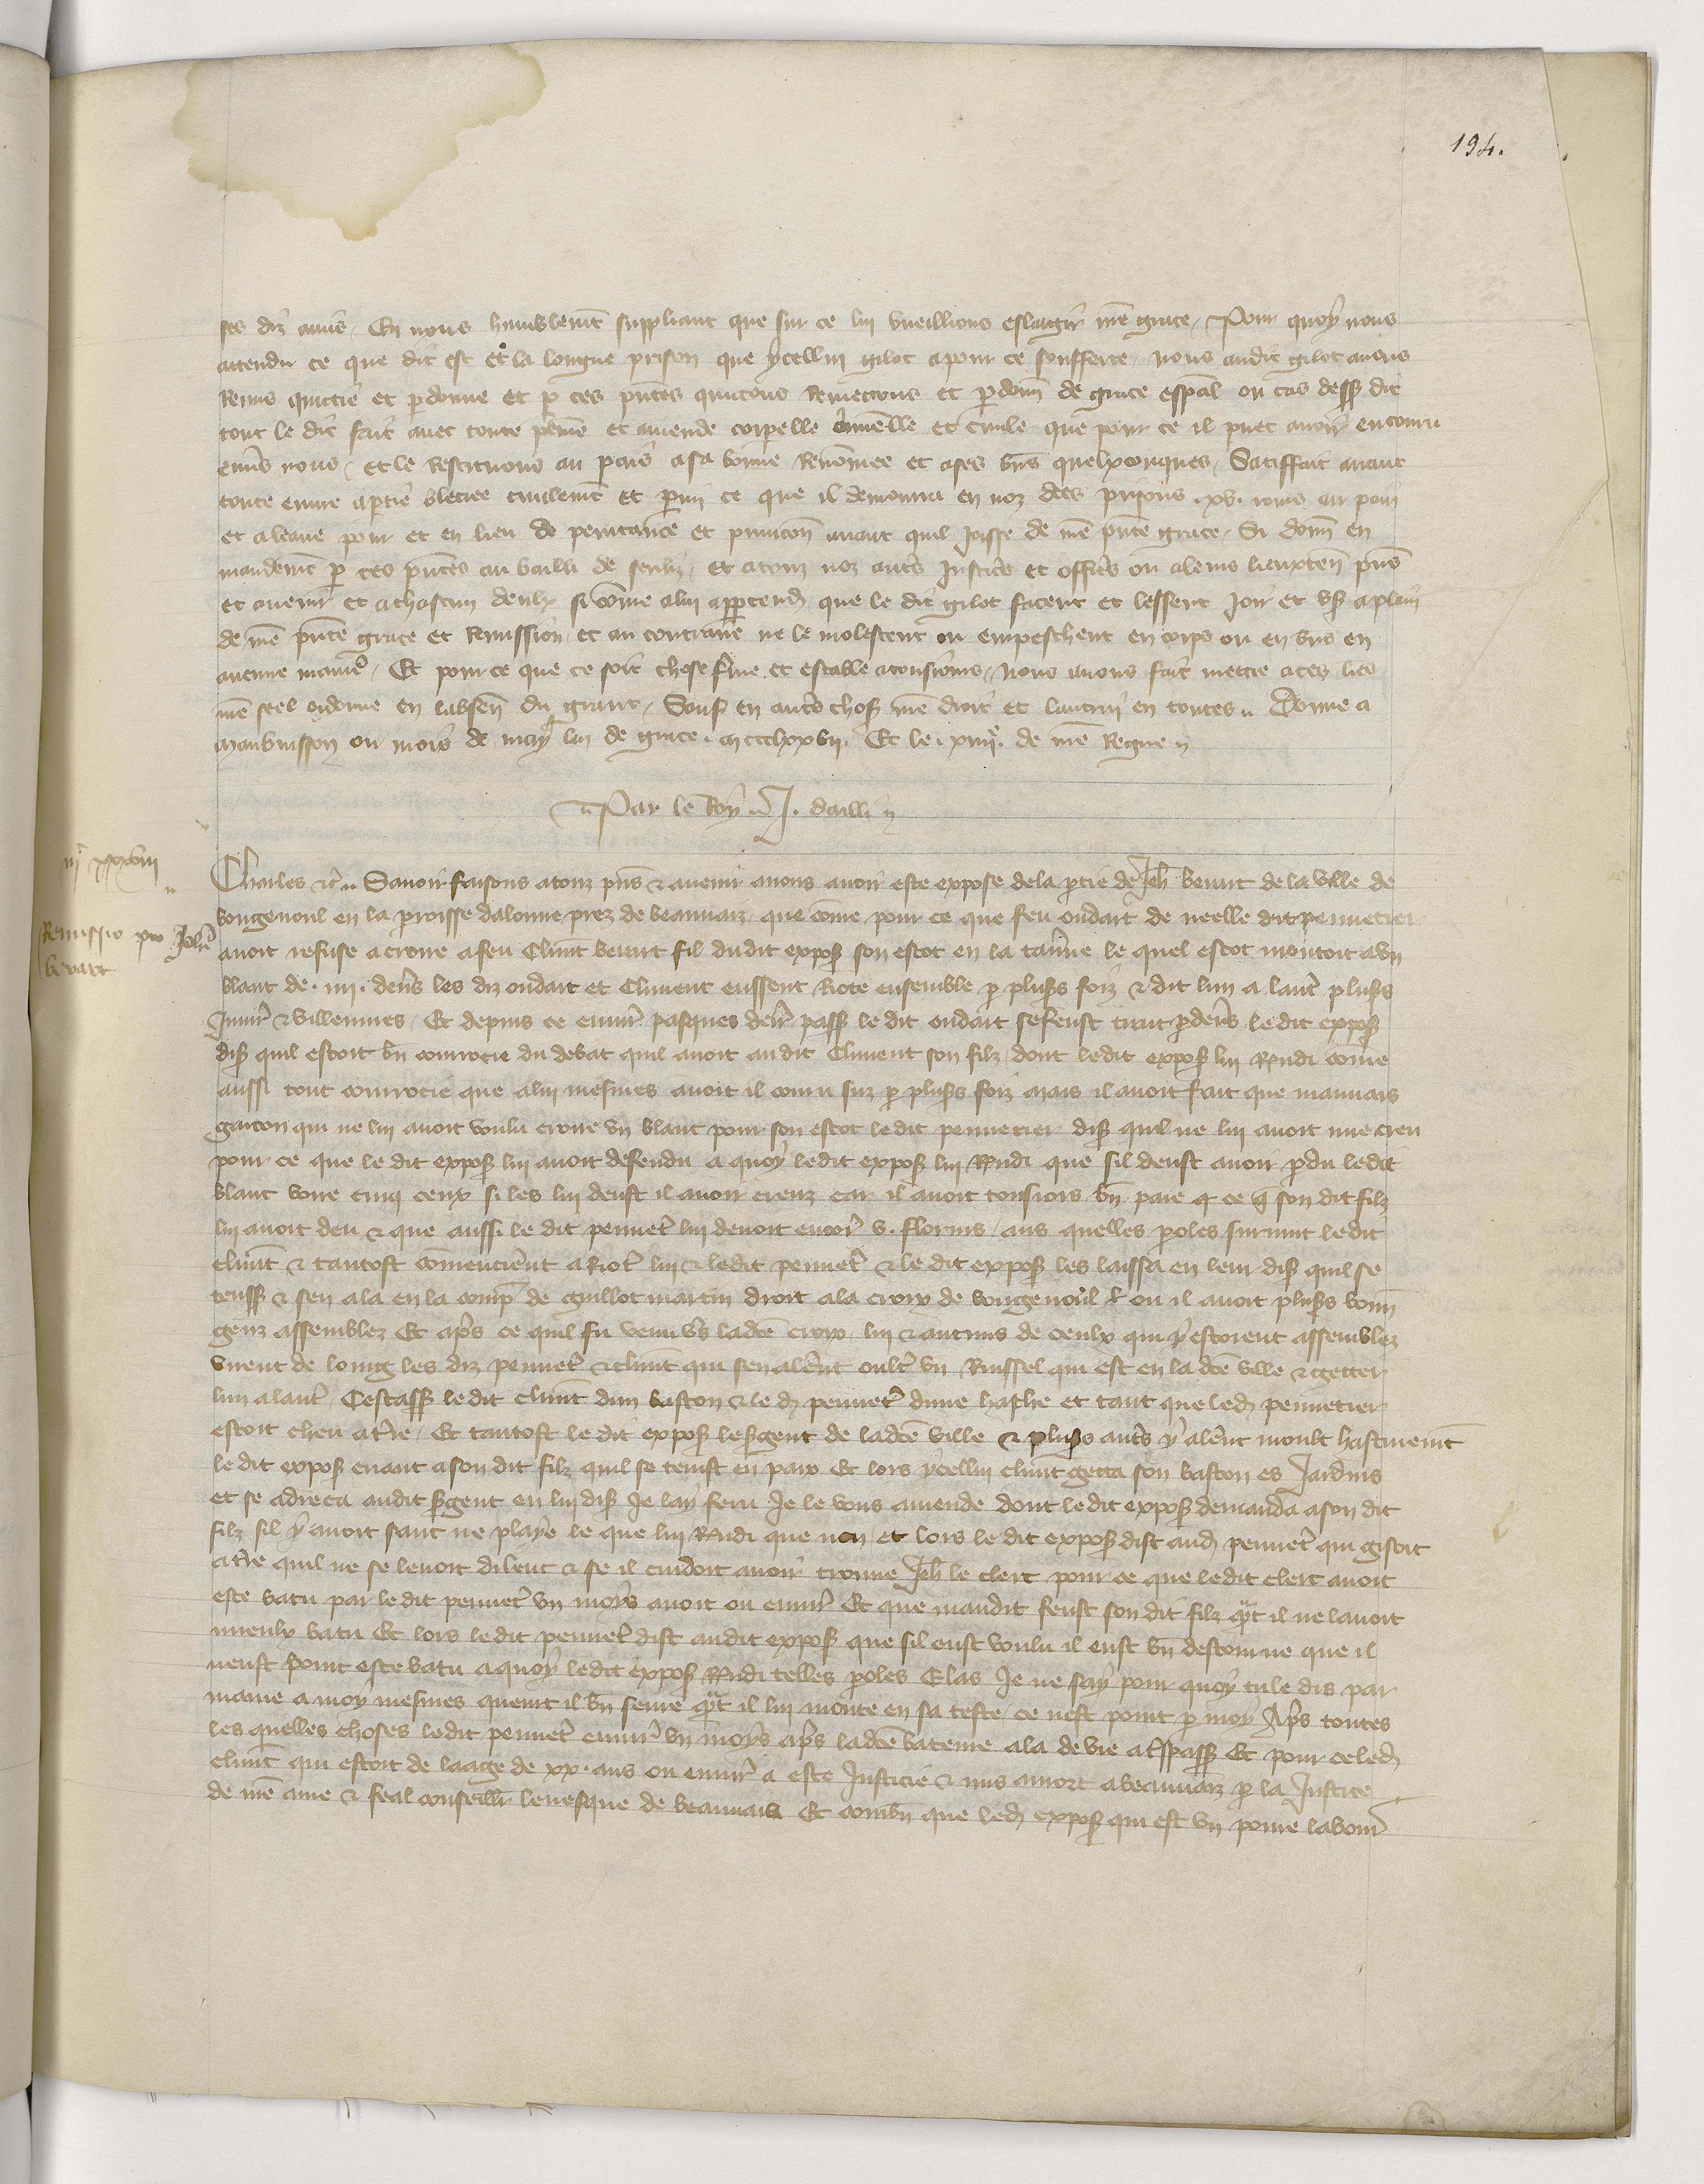 194.
ses diz amis. En nous humblemt suppliant que sur ce lui vueillions eslargir nre grace. Pour quoy nous
attendu ce que dit est et la longue prison que ycellui gilot a pour ce soufferte, nous audit gilot avons
Remis quictie et pdonne et p ces pntes quictons Remettons et pdonn de grace espal ou cas dess dit
tout le dit fait avec toute peine et amende corpelle criminelle et civile que pour ce il puet avoir encouru
envs nous, et le Restituons au pais a sa bonne Renommee et a ses bns quelxconques, Satiffait avant
toute euvre a partie blecee civilemt et pmi ce que il demourra en noz dces prisons .xv. jours au pain
et a leaue pour et en lieu de penitance et punicon avant quil joisse de nre pnte grace. Si donn en
mandemt p ces pntes au bailli de senliz, et a touz noz autres Justics et offics ou a leurs lieuxten pns
et avenir et a chascun deulx si come a lui appartend que le dit gilot facent et lessent Joir et us a plain
de nre pnte grace et Remission et au contraire ne le molestent ou empeschent en corps ou en bns en
aucune manie, Et pour ce que ce soit chose ferme et estable a tousjours, nous avons fait mettre a ces lres
nre seel ordonne en labsen du grant, Sauf en autres chos nre droit et lautruy en toutes. Donne a
Maubuisson ou mois de may lan de grace . m ccclxxvii. Et le . xiiiie. de nre Regne
Par le Roy J. dailli
iic xxxviii
Remissio pro Johe
berart
Charles etc. Savoir faisons a touz pns & avenir a nous avoir este expose de la partie de Jeh berart de la ville de
vougenoul en la proisse dalonne prez de beauvaiz que come pour ce que feu oudart de neelle dit pennetier
avoit refuse a croire a feu Climt berart fil dudit expos son escot en la taverne le quel escot montoit a un
blanc de . iiii . deners les diz oudart et Climent eussent Riote ensemble p plusrs foiz & dit lun a lautre plusrs
Injur & villennies, Et depuis ce envir pasques derr pass le dit oudart se feust trait pdevs le dit expos
dis quil estoit bn courrocie du debat quil avoit au dit Climent son filz, dont ledit expos lui Rndi come
aussi tout courrocie que a lui mesmes avoit il couru suz p plusrs foiz mais il avoit fait que mauvais
garcon qui ne lui avoit voulu croire un blanc pour son escot ledit pennetier dis quil ne lui avoit mie creu
pour ce que le dit expos lui avoit defendu a quoy ledit expos lui Rndi que sil deust avoir pdu ledit
blanc voire cinq cenx si les lui deust il avoir creuz car il avoit tousjors bn paie ce q son dit filz
lui avoit deu & que aussi le dit pennetr lui devoit encor v. florins, aus quelles poles survint ledit
climt & tantost comencierent a Rioter lui & ledit pennetr & le dit expos les laissa en leur dis quil se
teuss & sen ala en la comp de guillot martin droit a la croix de vougenoul ou il avoit plusrs bonn
genz assemblez Et aprs ce quil fu venu vs ladce croix lui & autruns de ceulx qui y estoient assemblez
virent de loing les diz pennetr & climt qui sen alerent oultr un Russel qui est en la dce ville & getter
lun a lautr Cestass le dit climt dun baston & le d pennetr dune hache et tant que led pennetier
estoit cheu a terre, Et tantost le dit expos le sergent de ladce ville & plusrs autrs y alerent moult hastivemt
le dit expos criant a son dit filz quil se tenist en paix Et lors ycellui climt getta son baston es Jardins
et se adreca audit sergent en lui dis Je lay feru Je le vous amende dont ledit expos demanda a son dit
filz sil y avoit sanc ne playe le que lui Rndi que non et lors le dit expos dist aud pennetr qui gisoit
a terre quil ne se levoit dilent & se il cuidoit avoir trouve Jeh le clerc pour ce que ledit clerc avoit
este batu par ledit pennetr un moys avoit ou envir Et que maudit feust son dit filz qant il ne lavoit
mieulx batu Et lors ledit pennetr dist audit expos que sil eust voulu il eust bn destourne que il
neust point este batu a quoy ledit expos Rndi telles poles Elas Je ne say pour quoy tu le dis par
mame a moy mesmes quemt il bn ferire qant il lui monte en sa teste, ce nest point p moy Aprs toutes
les quelles choses ledit pennetr envir un moys aprs ladce bateure ala de vie a trespass Et pour ce led
climt qui estoit de laage de xx. ans ou envir a este Justicie & mis a mort a beauvaiz p la Justice
de nre ame & feal conseiller levesque de beauvais Et combn que led expos qui est un povre labour